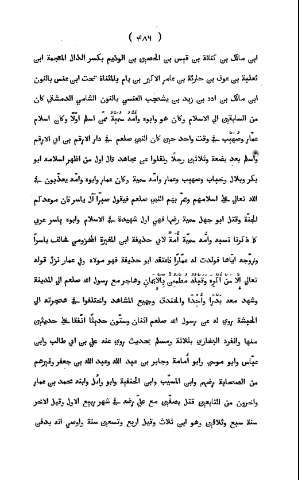 ( ٤٨٦ )
ابى مالك بن كنانة بن قيس بن الحصين بن الوذيم بكسر الذال المعجمة ابن
ثعلبة بن عوف بن حارثة بن عامر الاكبر بن يام بالمثناة تحت ابن عنس بالنون
ابن مالك بن ادد بن زيد بن يشجب العنسى بالنون الشامى الدمشقى كان
من السابقين الى الاسلام وكان هو وابوه وأمه سمية ممن اسلم اولا وكان اسلام
عمار وصهيب فى وقت واحد حين كان النبى صلعم فى دار الارقم بن ابى الارقم
وأسلم بعد بضعة وثلاثين رجلا نقلوا عن مجاهد قال اول من اظهر اسلامه ابو
بكر وبلال وخباب وصهيب وعمار وأمه سمية وكان عمار وابوه وأمه يعذبون فى
الله تعالى فى اسلامهم ويمر بهم النبى صلعم فيقول صبرا آل ياسر فان موعدكم
الجنة وقتل ابو جهل سمية رضها فهى اول شهيدة فى الاسلام وابوه ياسر عربى
كما ذكرنا نسبه وأمه سمية أمة لابى حذيفة ابن المغيرة المخزومى فحالف ياسرا
وزوجه اياها فولدت له عمارا فاعتقه ابو حذيفة فهو مولاه وفى عمار نزل قوله
تعالى إلا من أكره وقلبه مطمئن بالإيمان وهاجر مع رسول الله صلعم الى المدينة
وشهد معه بدرا وأحدا والخندق وجميع المشاهد واختلفوا فى هجرته الى
الحبشة روى له عن رسول الله صلعم اثنان وستون حديثا اتفقا على حديثين
منها وانفرد البخارى بثلاثة ومسلم بحديث روى عنه على بن ابى طالب وابن
عباس وابو موسى وابو أمامة وجابر بن عبد الله وعبد الله بن جعفر وغيرهم
من الصحابة رضهم وابن المسيب وابن الحنفية وابو وائل وابنه محمد بن عمار
وآخرون من التابعين قتل بصفين مع على رضه فى شهر ربيع الاول وقيل الاخر
سنة سبع وثلاثين وهو ابن ثلاث وقيل اربع وتسعين سنة واوصى انه يدفن